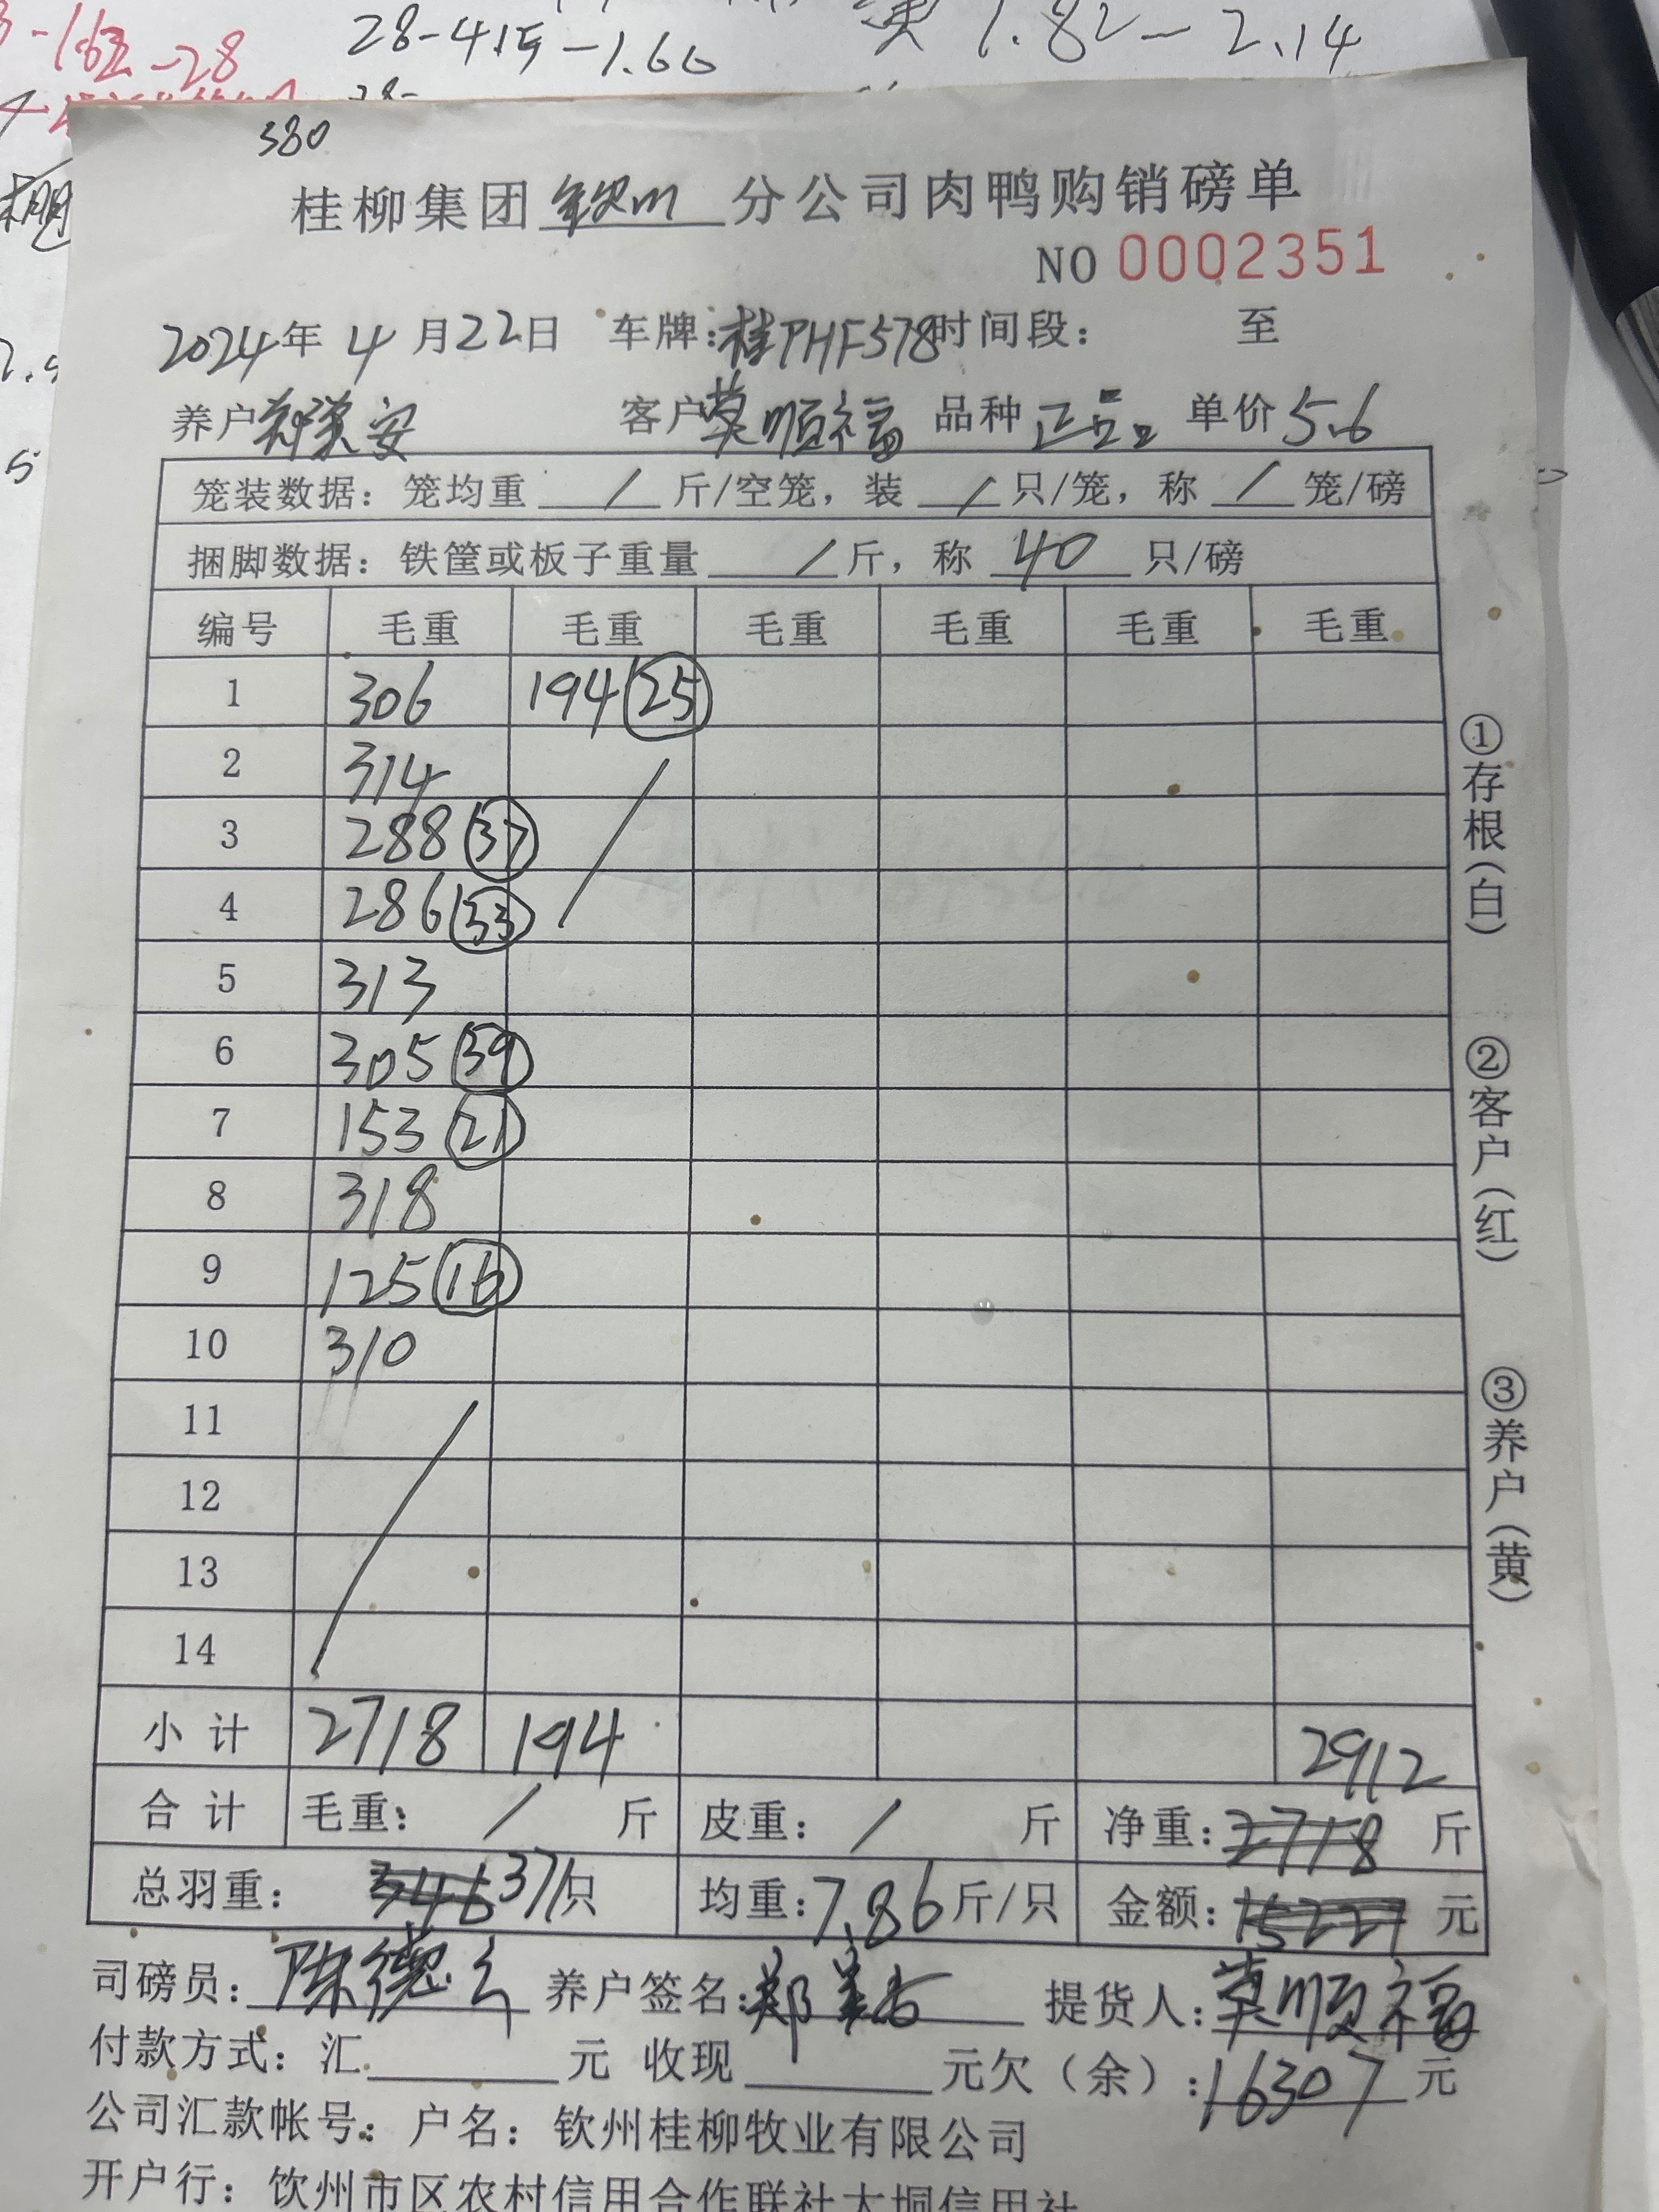 3-1.6 -28
28-4.15-1.66
1.82-2.14
380
桂柳集团钦州分公司肉鸭购销磅单
NO 0002351
2024年4月22日 车牌:桂PHF578时间段: 至
养户郑美安 客户莫顺福 品种正品 单价5.6
笼装数据:笼均重 / 斤/空笼,装 / 只/笼,称 / 笼/磅
捆脚数据:铁筐或板子重量 / 斤,称 40 只/磅
编号 毛重 毛重 毛重 毛重 毛重 毛重
1 306 194 25
2 314
3 288 37
4 286 33
5 313
6 305 39
7 153 21
8 318
9 125 16
10 310
11
12
13
14
小计 2718 194 2912
合计 毛重: / 斤 皮重: / 斤 净重:2718 斤
总羽重: 346 371只 均重:7.86斤/只 金额:15221 元
司磅员:陈德 养户签名:郑美 提货人:莫顺福
付款方式:汇 元 收现 元欠(余):16307元
公司汇款帐号:户名:钦州桂柳牧业有限公司
开户行:钦州市区农村信用合作联社大垌信用社
①存根(白)
②客户(红)
③养户(黄)